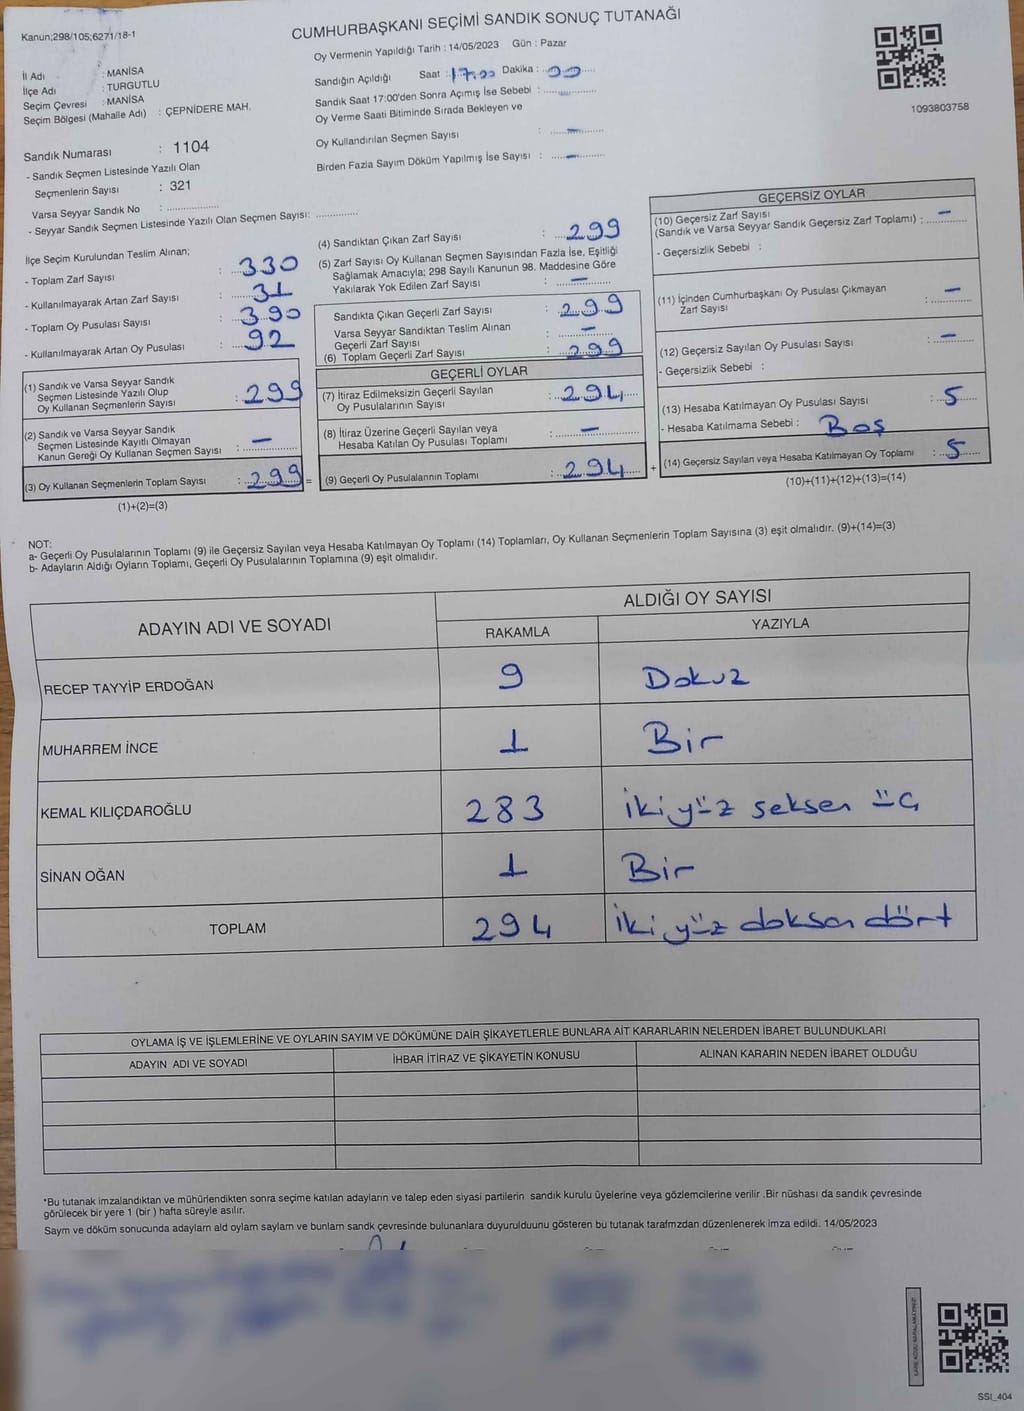 Kanun;298/105;6271/18-1
CUMHURBAŞKANI SEÇİMİ SANDIK SONUÇ TUTANAĞI
Oy Vermenin Yapıldığı Tarih : 14/05/2023 Gün : Pazar
1093803758
İl Adı : MANİSA
İlçe Adı : TURGUTLU
Seçim Çevresi : MANİSA
Seçim Bölgesi (Mahalle Adı) : ÇEPNİDERE MAH.
Sandık Numarası : 1104
- Sandık Seçmen Listesinde Yazılı Olan
Seçmenlerin Sayısı : 321
Varsa Seyyar Sandık No : ..............
- Seyyar Sandık Seçmen Listesinde Yazılı Olan Seçmen Sayısı: ............
Sandığın Açıldığı Saat : 17:00 Dakika : 00
Sandık Saat 17:00'den Sonra Açımış İse Sebebi : —
Oy Verme Saati Bitiminde Sırada Bekleyen ve
Oy Kullandırılan Seçmen Sayısı : —
Birden Fazla Sayım Döküm Yapılmış İse Sayısı : —
İlçe Seçim Kurulundan Teslim Alınan;
- Toplam Zarf Sayısı : 330
- Kullanılmayarak Artan Zarf Sayısı : 31
- Toplam Oy Pusulası Sayısı : 390
- Kullanılmayarak Artan Oy Pusulası : 92
(1) Sandık ve Varsa Seyyar Sandık
Seçmen Listesinde Yazılı Olup
Oy Kullanan Seçmenlerin Sayısı : 299
(2) Sandık ve Varsa Seyyar Sandık
Seçmen Listesinde Kayıtlı Olmayan
Kanun Gereği Oy Kullanan Seçmen Sayısı : —
(3) Oy Kullanan Seçmenlerin Toplam Sayısı : 299 =
(1)+(2)=(3)
(4) Sandıktan Çıkan Zarf Sayısı : 299
(5) Zarf Sayısı Oy Kullanan Seçmen Sayısından Fazla İse, Eşitliği
Sağlamak Amacıyla; 298 Sayılı Kanunun 98. Maddesine Göre
Yakılarak Yok Edilen Zarf Sayısı : —
Sandıkta Çıkan Geçerli Zarf Sayısı : 299
Varsa Seyyar Sandıktan Teslim Alınan
Geçerli Zarf Sayısı : —
(6) Toplam Geçerli Zarf Sayısı : 299
GEÇERLİ OYLAR
(7) İtiraz Edilmeksizin Geçerli Sayılan
Oy Pusulalarının Sayısı : 294
(8) İtiraz Üzerine Geçerli Sayılan veya
Hesaba Katılan Oy Pusulası Toplamı : —
(9) Geçerli Oy Pusulalarının Toplamı : 294 +
GEÇERSİZ OYLAR
(10) Geçersiz Zarf Sayısı
(Sandık ve Varsa Seyyar Sandık Geçersiz Zarf Toplamı) : —
- Geçersizlik Sebebi :
(11) İçinden Cumhurbaşkanı Oy Pusulası Çıkmayan
Zarf Sayısı : —
(12) Geçersiz Sayılan Oy Pusulası Sayısı : —
- Geçersizlik Sebebi :
(13) Hesaba Katılmayan Oy Pusulası Sayısı : 5
- Hesaba Katılmama Sebebi : Boş
(14) Geçersiz Sayılan veya Hesaba Katılmayan Oy Toplamı : 5
(10)+(11)+(12)+(13)=(14)
NOT:
a- Geçerli Oy Pusulalarının Toplamı (9) ile Geçersiz Sayılan veya Hesaba Katılmayan Oy Toplamı (14) Toplamları, Oy Kullanan Seçmenlerin Toplam Sayısına (3) eşit olmalıdır. (9)+(14)=(3)
b- Adayların Aldığı Oyların Toplamı, Geçerli Oy Pusulalarının Toplamına (9) eşit olmalıdır.
ADAYIN ADI VE SOYADI
ALDIĞI OY SAYISI
RAKAMLA YAZIYLA
RECEP TAYYİP ERDOĞAN 9 Dokuz
MUHARREM İNCE 1 Bir
KEMAL KILIÇDAROĞLU 283 İkiyüz seksen üç
SİNAN OĞAN 1 Bir
TOPLAM 294 İkiyüz doksan dört
OYLAMA İŞ VE İŞLEMLERİNE VE OYLARIN SAYIM VE DÖKÜMÜNE DAİR ŞİKAYETLERLE BUNLARA AİT KARARLARIN NELERDEN İBARET BULUNDUKLARI
ADAYIN ADI VE SOYADI İHBAR İTİRAZ VE ŞİKAYETİN KONUSU ALINAN KARARIN NEDEN İBARET OLDUĞU
*Bu tutanak imzalandıktan ve mühürlendikten sonra seçime katılan adayların ve talep eden siyasi partilerin sandık kurulu üyelerine veya gözlemcilerine verilir .Bir nüshası da sandık çevresinde
görülecek bir yere 1 (bir ) hafta süreyle asılır.
Saym ve döküm sonucunda adaylarn ald oylam saylam ve bunlam sandk çevresinde bulunanlara duyurulduunu gösteren bu tutanak tarafmzdan düzenlenerek imza edildi. 14/05/2023
SSI_404